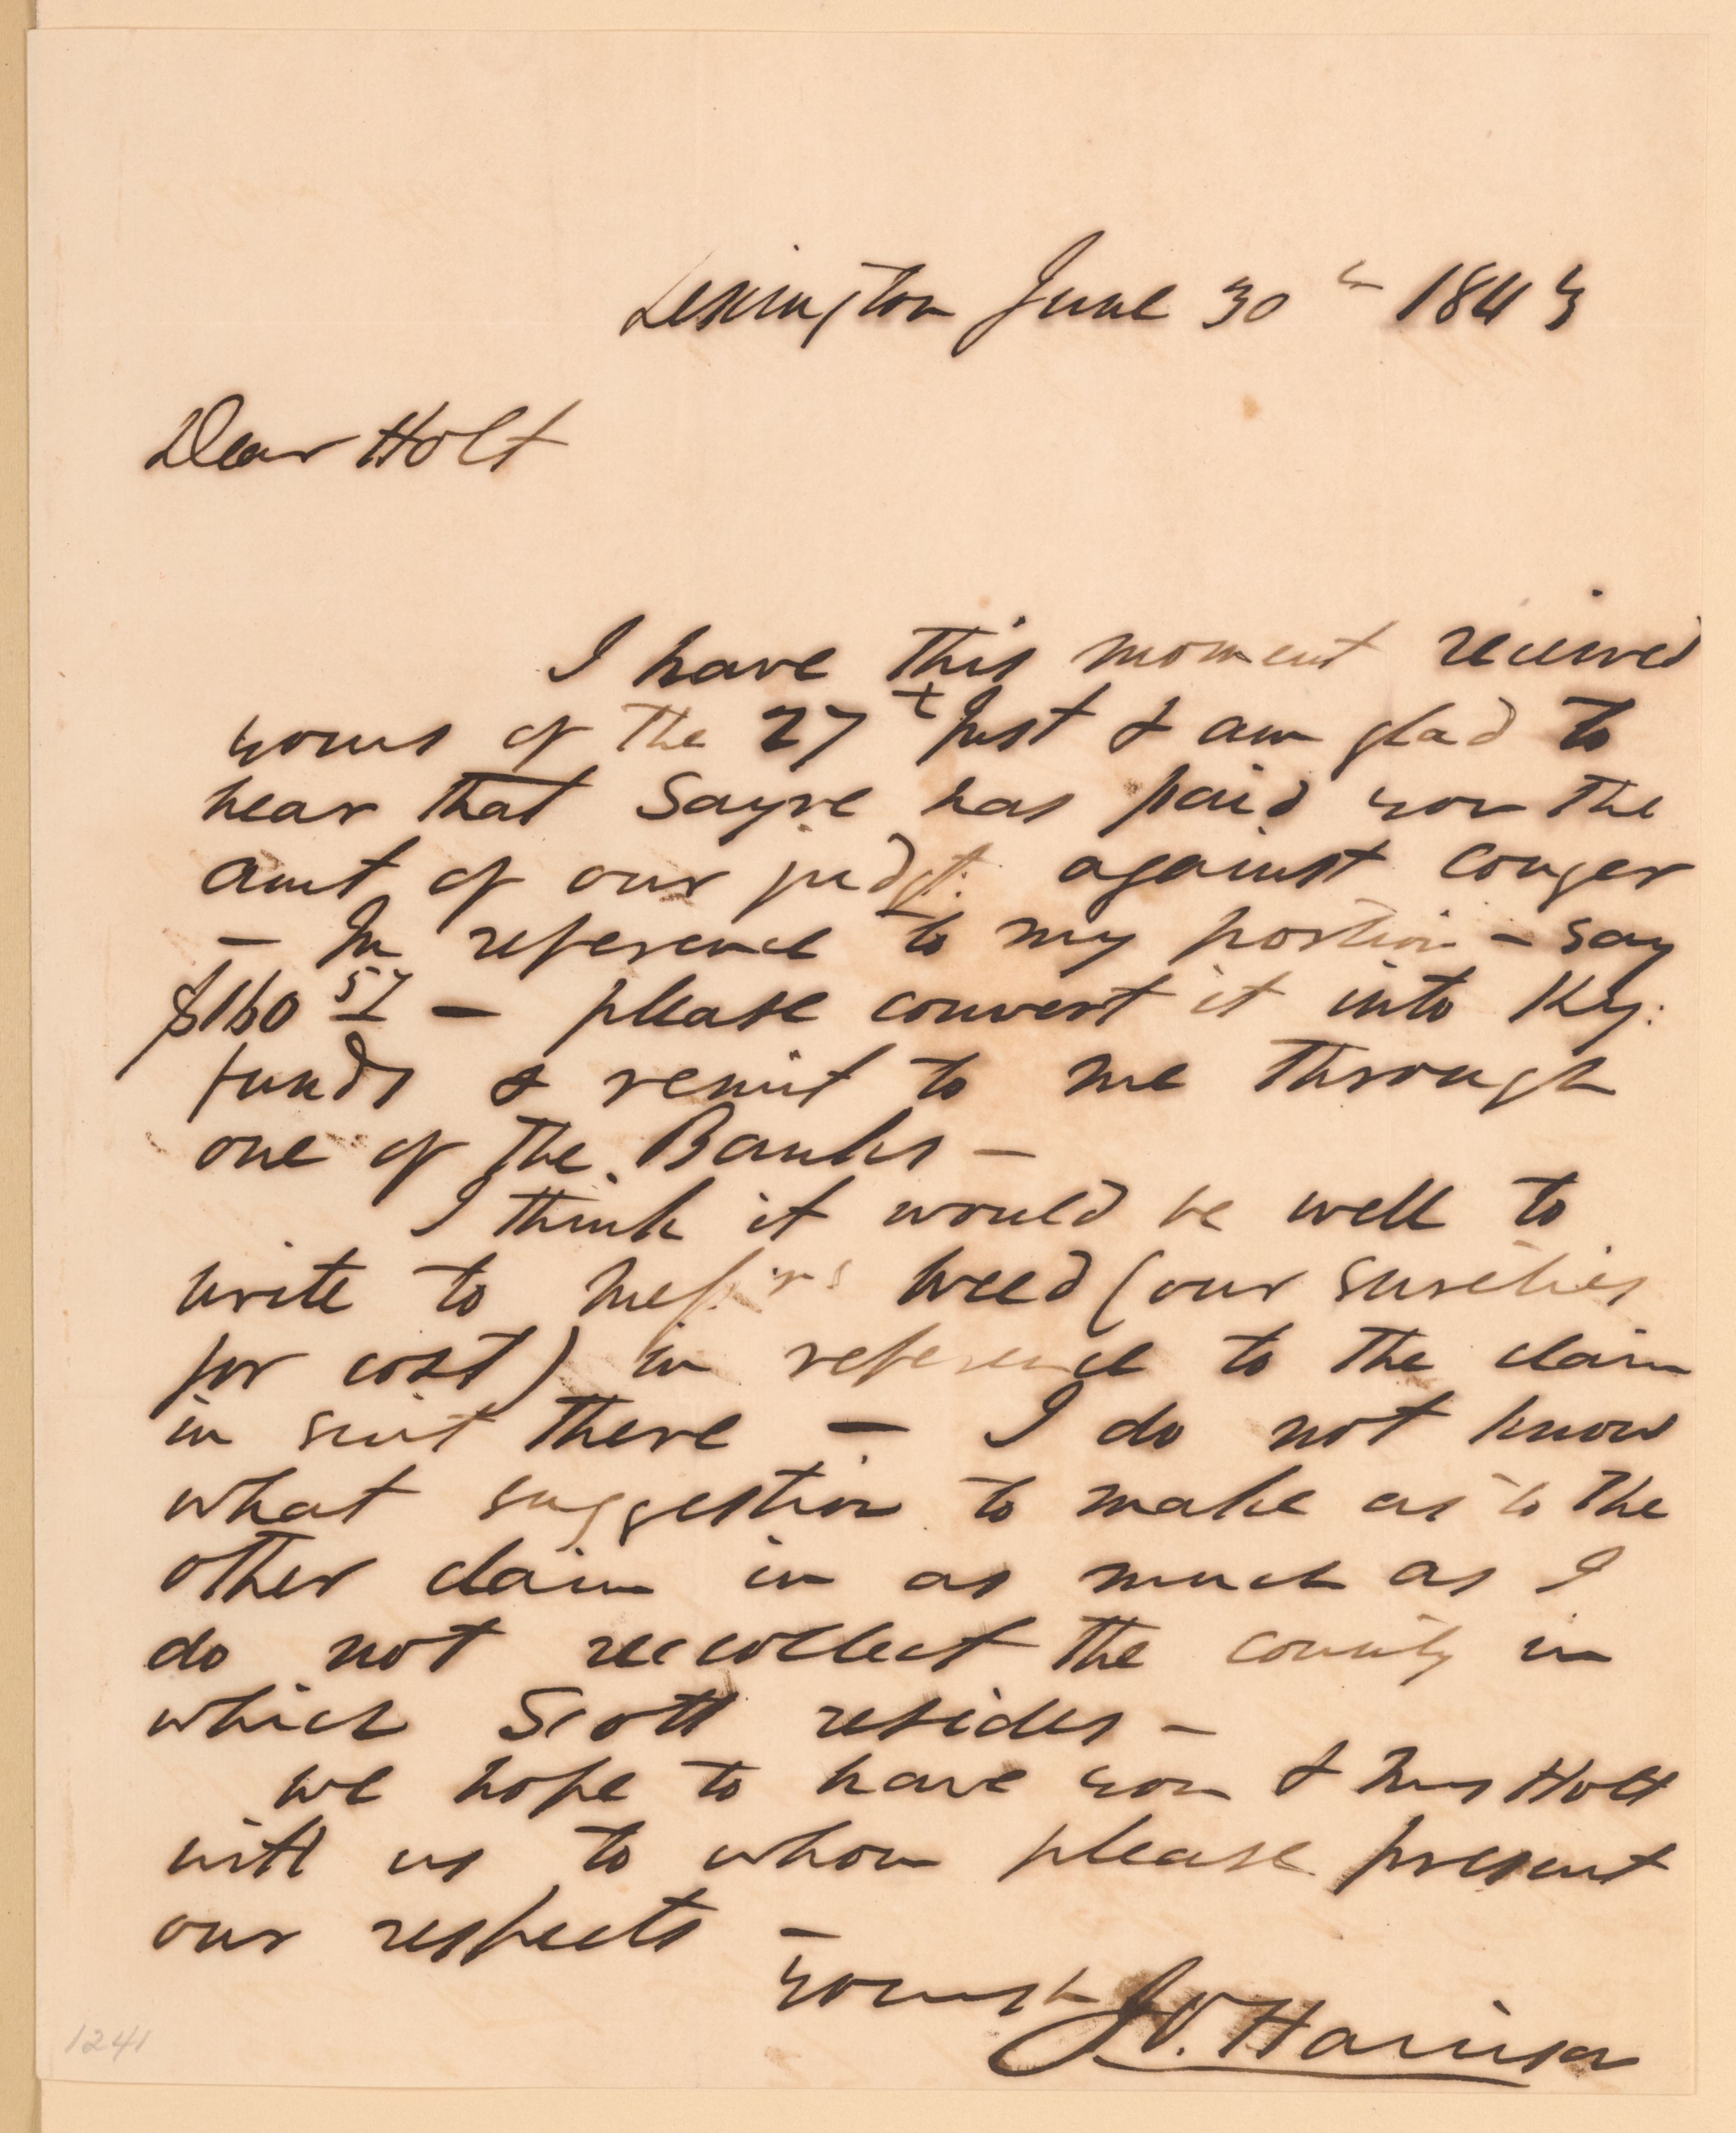 Lexington June 30th 1843
Dear Holt
I have this moment recieved
yours of the 27t Inst & am glad to
hear that Sayre has paid you the
amt, of our judgt: against Conger
— In reference to my portion — say
$160 57 — please convert it into Ky:
funds & remit to me through
one of the Banks —
I think it would be well to
write to Messrs Weed (our sureties
for cost) in reference to the claim
in suit there — I do not know
what suggestion to make as to the
other claim in as much as I
do not reccollect the county in
which Scott resides —
We hope to have you & Mrs Holt
with us to whom please present
our respects —
Yours
J.O. Harrison
1241